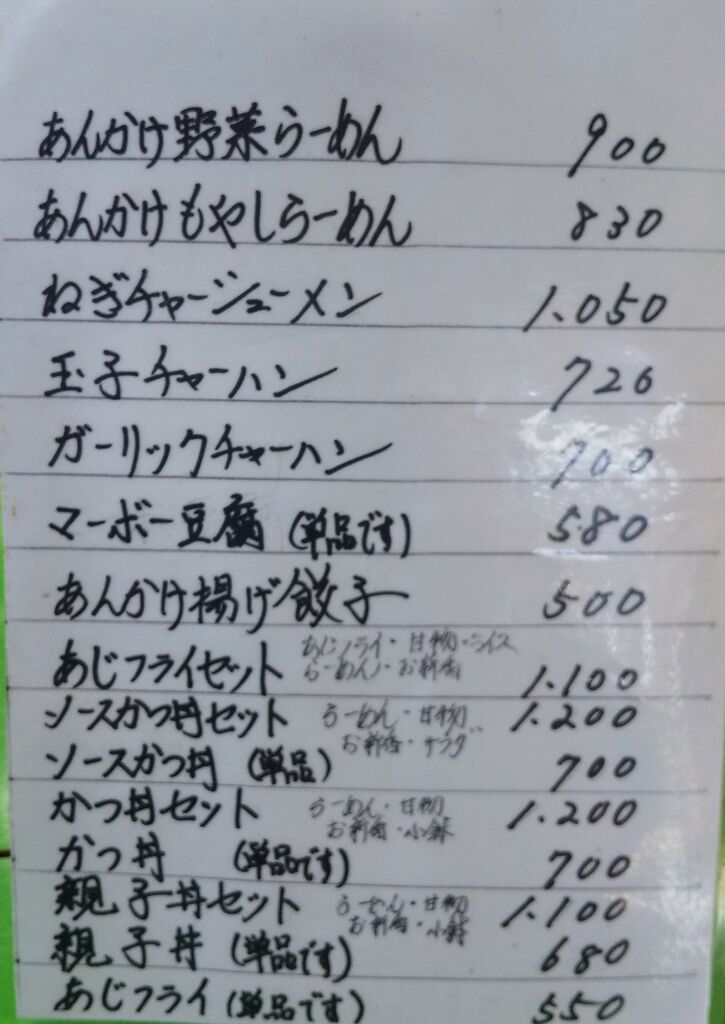 あんかけ野菜らーめん 900
あんかけもやしらーめん 830
ねぎチャージューメン 1.050
玉子チャーハン 720
ガーリックチャーハン 700
マーボー豆腐 (単品です) 580
あんかけ揚げ餃子 500
あじフライセット あじフライ・甘物・ライス
らーめん・お新香 1.100
ソースかつ丼セット らーめん・甘物 1.200
お新香・サラダ
ソースかつ丼 (単品) 700
かつ丼セット らーめん・甘物 1.200
お新香・小鉢
かつ丼 (単品です) 700
親子丼セット らーめん・甘物 1.100
お新香・小鉢
親子丼 (単品です) 680
あじフライ (単品です) 550